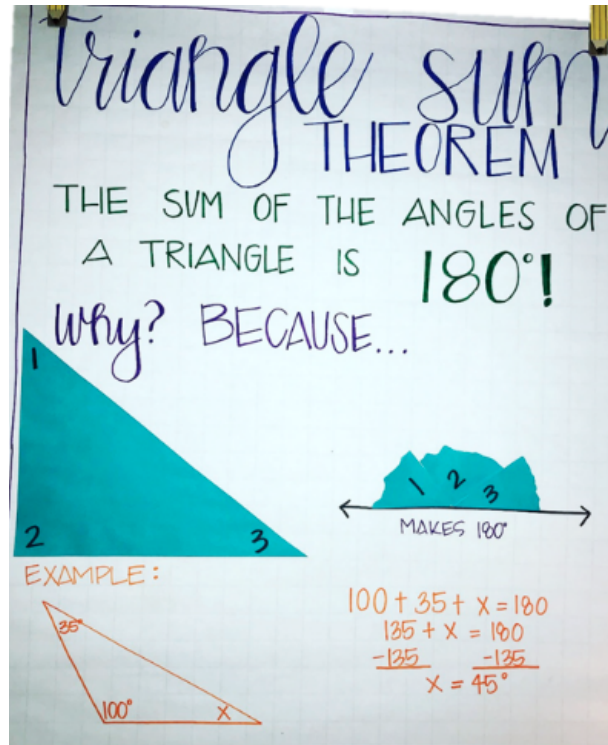 triangle sum
THEOREM
THE SUM OF THE ANGLES OF
A TRIANGLE IS 180°!
Why? BECAUSE...
1
2
3
1 2 3
MAKES 180°
EXAMPLE:
35°
100°
x
100 + 35 + x = 180
135 + x = 180
-135 -135
x = 45°